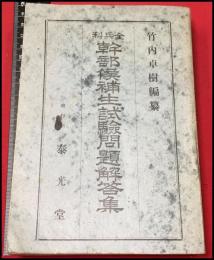 全兵科
幹部候補生試驗問題解答集
竹内卓樹編纂
泰光堂